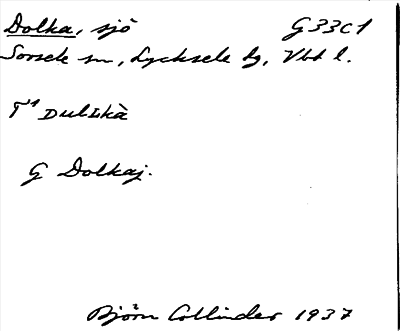 Dolka, sjö G33c1
Sorsele sn, Lycksele lg, Vbt l.
Dulkkà
G Dolkaj.
Björn Collinder 1937